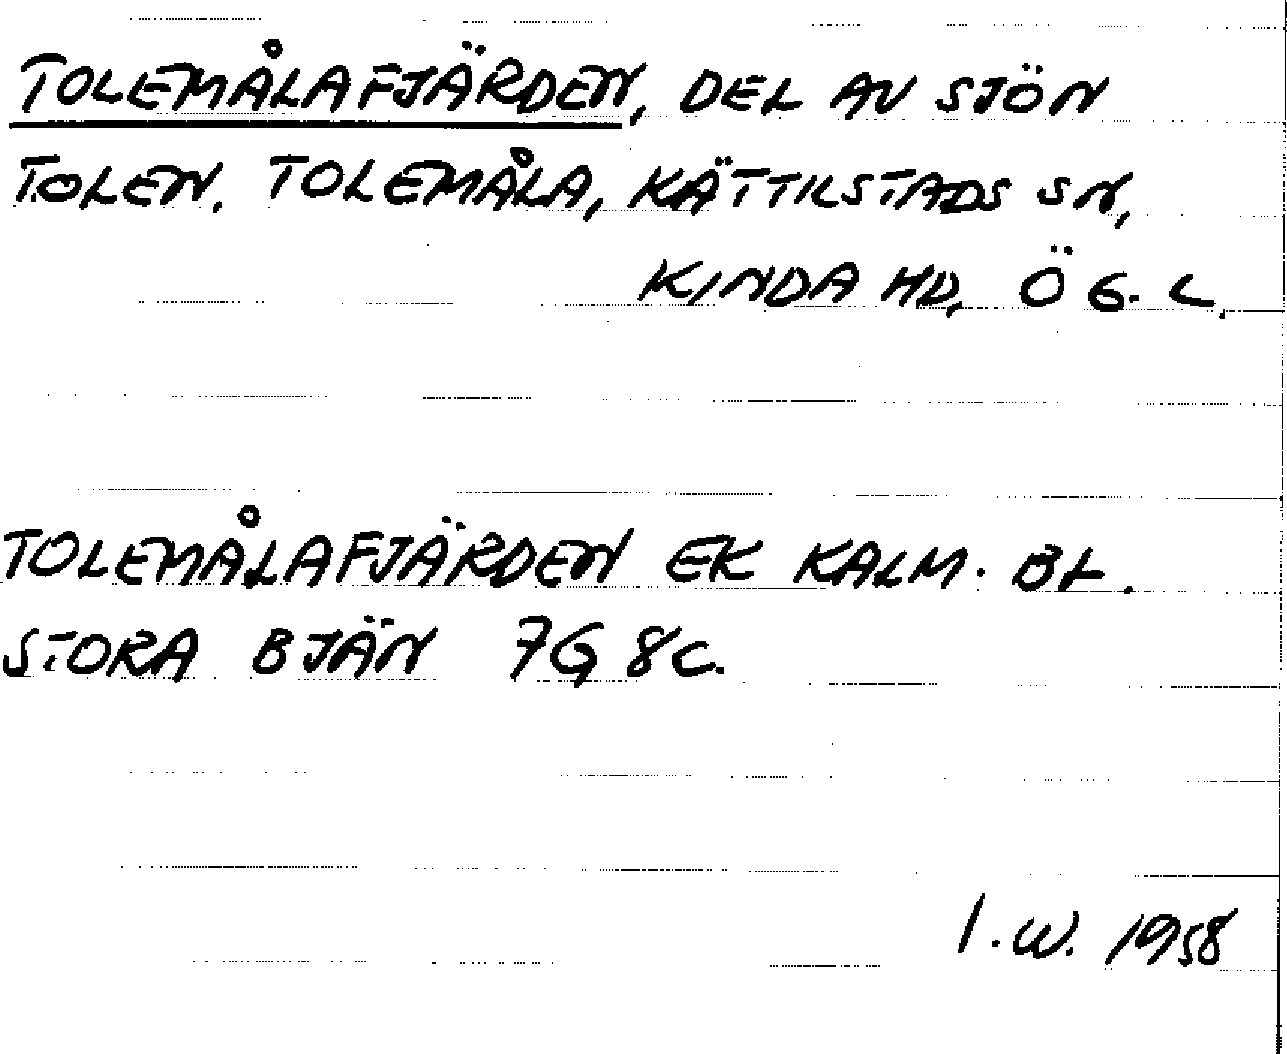 TOLEMÅLAFJÄRDEN, DEL AV SJÖN
TOLEN. TOLEMÅLA, KÄTTILSTADS SN,
KINDA HD, ÖG. L.
TOLEMÅLAFJÄRDEN EK KALM. BL.
STORA BJÄN 7G 8C.
I.W. 1958